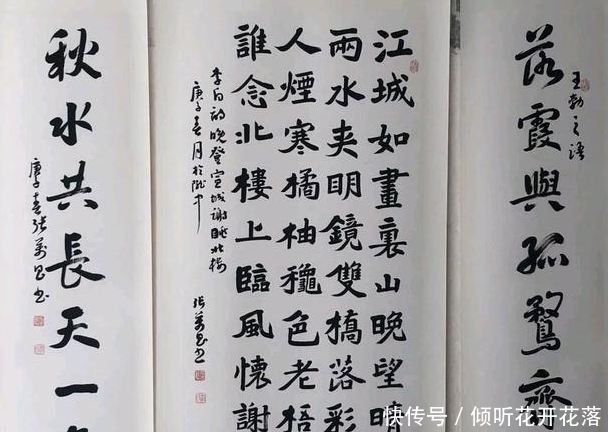 落霞與孤鶩齊
王勃之語
江城如畫裏山晚望晴
兩水夾明鏡雙橋落彩
人煙寒橘柚穐色老梧
誰念北樓上臨風懷謝
李白詩晚登宣城謝眺北樓
庚子春月於隴中
張萬昌書
秋水共長天一
庚子春張萬昌書
快传号/倾听花开花落